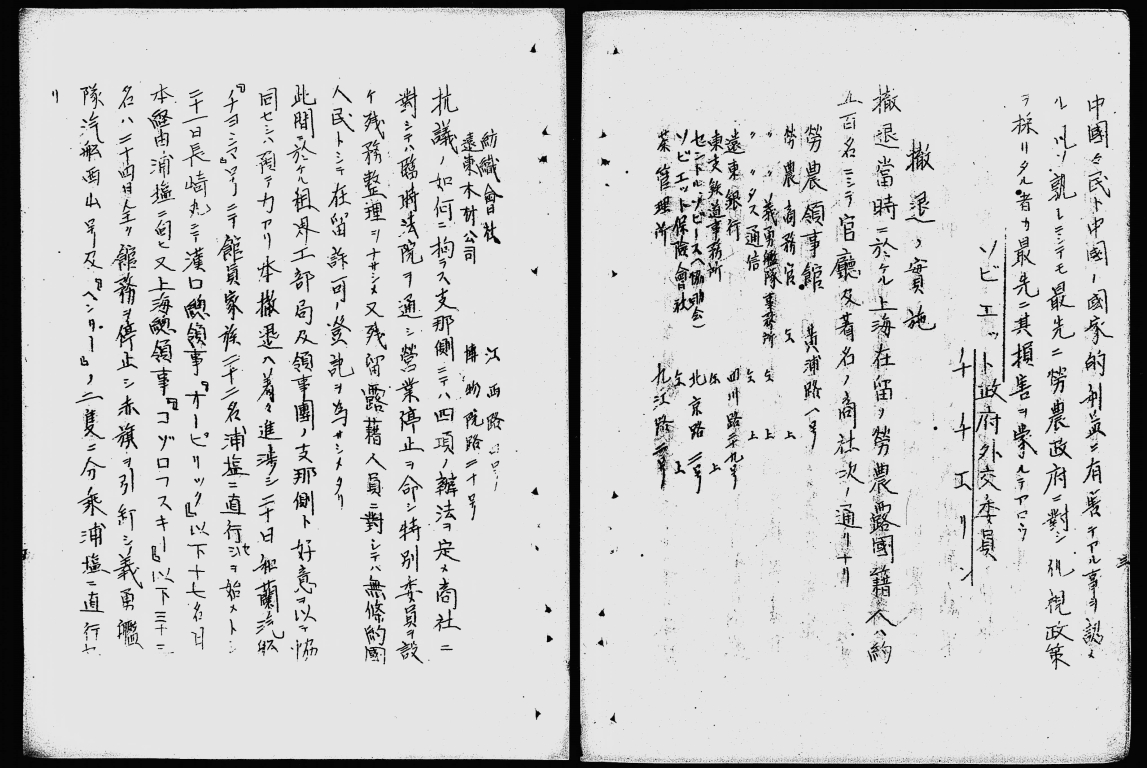 三
中國々民ト中國ノ國家的利益ニ有害テアル事ヲ認メ
ル 以ソ孰レニシテモ最先ニ勞農政府ニ對シ仇視政策
ヲ採リタル者カ最先ニ其損害ヲ蒙ルテアロウ
ソビエット政府外交委員
チチエリン
撤退ノ實施
撤退當時ニ於ケル上海在留ノ勞農露國籍人ハ約
五百名ニシテ官廳及著名ノ商社次ノ通リナリ
勞農領事館 黄浦路一号
勞農商務官 仝上
〃 〃 義勇艦隊事務所 仝上
〃 〃 タス通信 仝上
遠東銀行 四川路 九号
東支鉄道事務所 仝上
セントルソビーズ(協助会) 北京路 号
ソビエット保險會社 仝上
茶管理所 九江路 号
紡織會社 江西路 号
遠東木材公司 博物院路二十号
抗議ノ如何ニ拘ラス支那側ニテハ四項ノ辦法ヲ定メ商社ニ
對シテハ臨時法院ヲ通シ營業停止ヲ命シ特別委員ヲ設
ケ残務整理ヲナサシメ又残留露籍人員ニ對シテハ無條約國
人民トシテ在留許可ノ登記ヲ為サシメタリ
此間ニ於ケル租界工部局及領事團ノ支那側ト好意ヲ以テ協
同セシハ預テカアリ本撤退ハ着々進渉シ二十日和蘭汽船
『チヨシマ』号ニテ館員家族二十二名浦塩ニ直行セシヲ始メトシ
二十一日長崎丸ニテ漢口總領事『オービリック』以下十七名日
本経由浦塩ニ向ヒ又上海總領事『コゾロフスキー』以下三十二
名ハ二十四日全ク館務ヲ停止シ赤旗ヲ引卸シ義勇艦
隊汽船西山号及『ヘンリー』ノ二隻ニ分乘浦塩ニ直行セ
リ